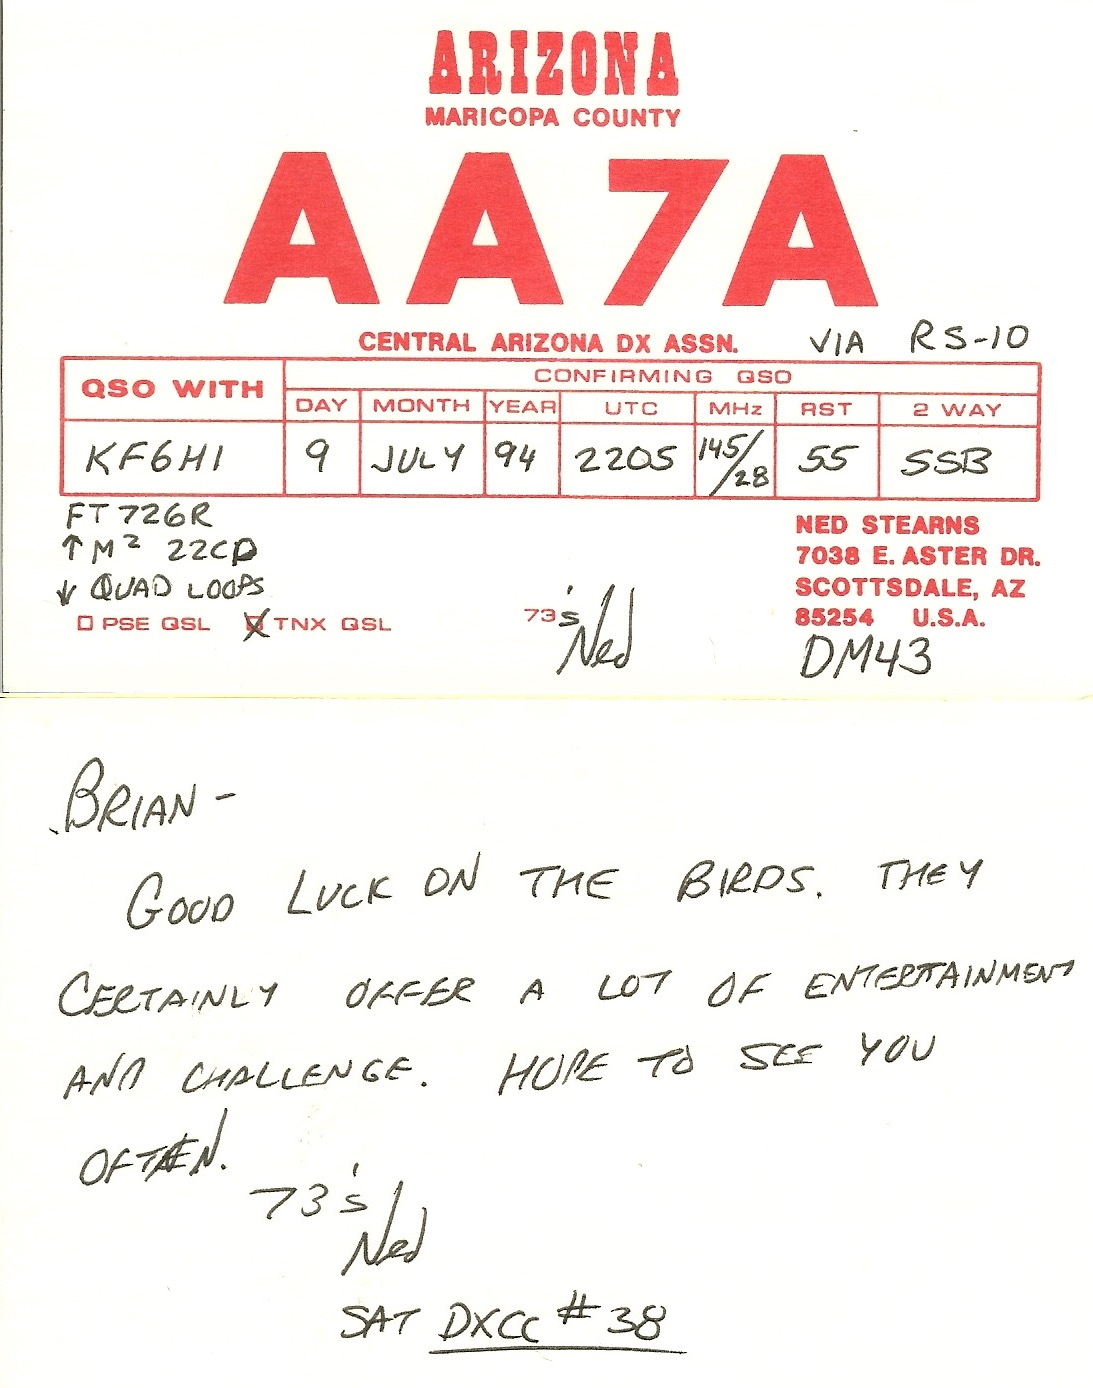 ARIZONA
MARICOPA COUNTY
AA7A
CENTRAL ARIZONA DX ASSN. VIA RS-10
QSO WITH CONFIRMING QSO
DAY MONTH YEAR UTC MHz RST 2 WAY
KF6HI 9 JULY 94 2205 145/28 55 SSB
FT 726R
↑ M² 22CP
↓ QUAD LOOPS
PSE QSL TNX QSL
73's Ned
NED STEARNS
7038 E. ASTER DR.
SCOTTSDALE, AZ
85254 U.S.A.
DM43
BRIAN -
GOOD LUCK ON THE BIRDS. THEY
CERTAINLY OFFER A LOT OF ENTERTAINMENT
AND CHALLENGE. HOPE TO SEE YOU
OFTEN.
73's
Ned
SAT DXCC #38